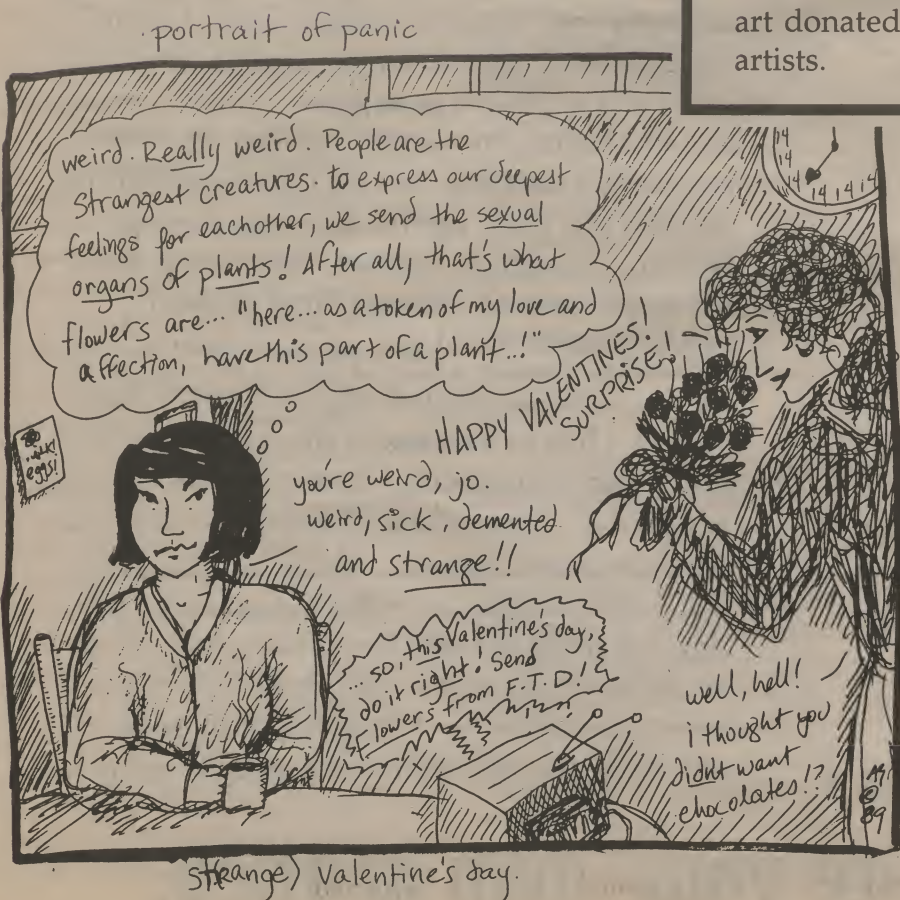 portrait of panic
art donated
artists.
weird. Really weird. People are the
strangest creatures. to express our deepest
feelings for eachother, we send the sexual
organs of plants! After all, that's what
flowers are... "here... as a token of my love and
affection, have this part of a plant..!"
14
14
14
14 14 14
HAPPY VALENTINES!
SURPRISE!
eggs!
you're weird, jo.
weird, sick, demented
and strange!!
...so, this Valentine's day,
do it right! Send
flowers from F.T.D!
well, hell!
i thought you
didn't want
chocolates!?
©
89
St(range) Valentine's day.